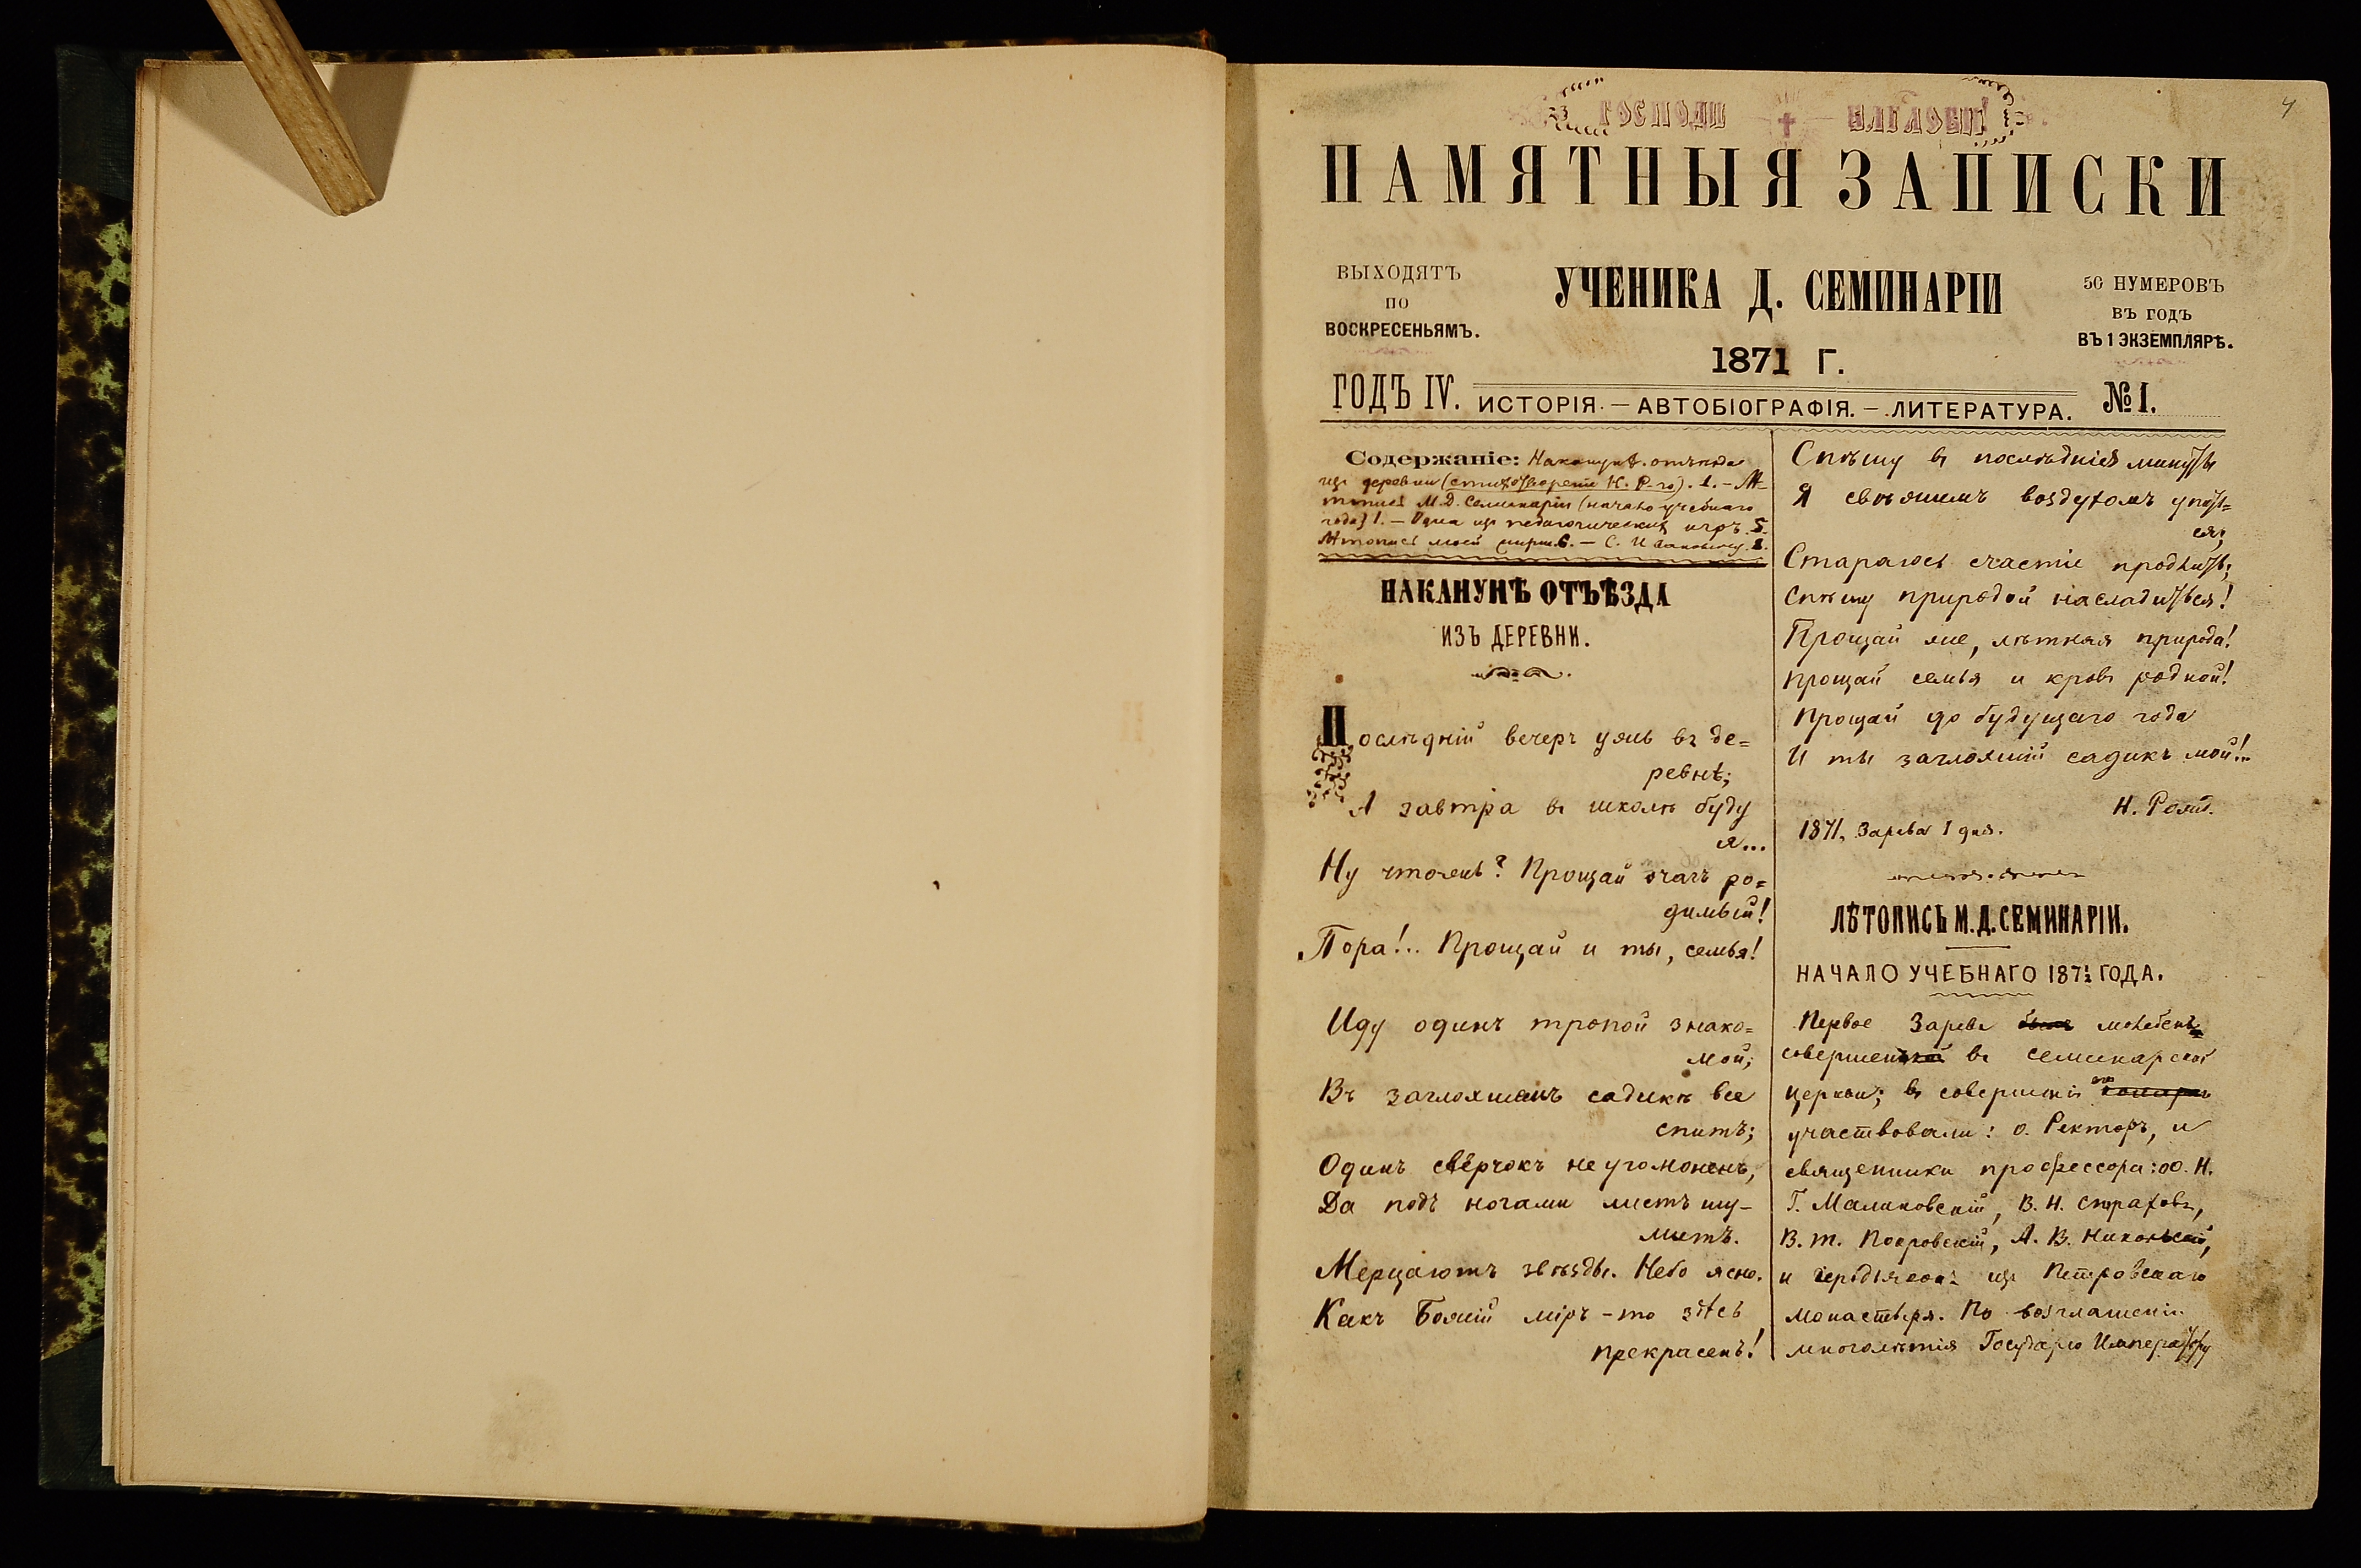 4
ГОСПОДИ БЛГЛОВИ!
ПАМЯТНЫЯ ЗАПИСКИ
ВЫХОДЯТЪ
ПО
ВОСКРЕСЕНЬЯМЪ.
УЧЕНИКА Д. СЕМИНАРІИ
50 НУМЕРОВЪ
ВЪ ГОДЪ
ВЪ 1 ЭКЗЕМПЛЯРѢ.
1871 Г.
ГОДЪ IV. ИСТОРІЯ. — АВТОБІОГРАФІЯ. — ЛИТЕРАТУРА. № I.
Содержаніе: Наканунѣ отъѣзда
изъ деревни (стихотвореніе Н. Р-го). 1. — Лѣ-
топись М. Д. Семинаріи (начало учебнаго
года) 1. — Одна изъ педагогическихъ игръ. 5.
Лѣтопись моей 6. — С. 8.
НАКАНУНѢ ОТЪѢЗДА
ИЗЪ ДЕРЕВНИ.
Послѣдній вечеръ ужь въ де=
ревнѣ;
А завтра въ школѣ буду
я...
Ну чтожь? Прощай очагъ ро=
димый!
Пора!.. Прощай и ты, семья!
Иду одинъ тропой знако=
мой;
Въ заглохшемъ садикѣ все
спитъ;
Одинъ свёрчокъ неугомоненъ,
Да подъ ногами листъ шу-
митъ.
Мерцаютъ звѣзды. Небо ясно.
Какъ Божій міръ-то здѣсь
прекрасенъ!
Спѣшу въ послѣднія минуты
Я свѣжимъ воздухомъ упить=
ся;
Стараюсь счастіе продлить;
Спѣшу природой насладиться!
Прощай же, лѣтняя природа!
Прощай семья и кровъ родной!
Прощай до будущаго года
И ты заглохшій садикъ мой!..
Н. Рожд.
1871, Зарева 1 дня.
ЛѢТОПИСЬ М. Д. СЕМИНАРІИ.
НАЧАЛО УЧЕБНАГО 187½ ГОДА.
Первое Зарева молебенъ
совершенъ въ семинарской
церкви; въ совершеніи его
участвовали: о. Ректоръ, и
священники профессора: оо. Н.
Г. Малиновскій, В. Н. Страховъ,
В. т. Покровскій, А. В. Никольскій,
и іеродіаконъ изъ Петровскаго
монастыря. По возглашеніи
многолѣтія Государю Императору